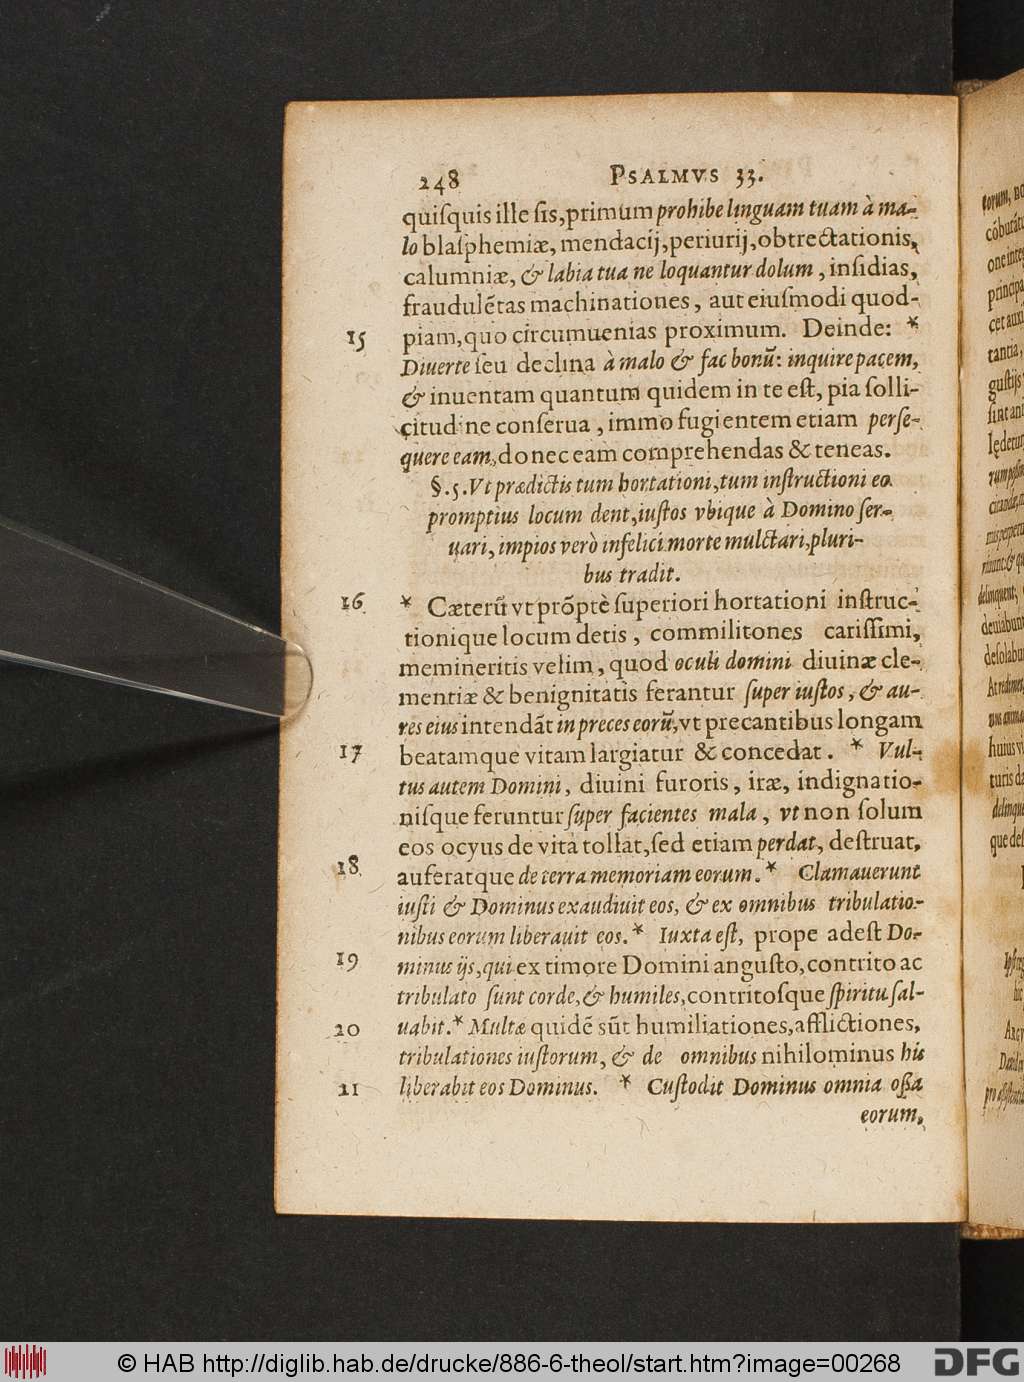 248 PSALMVS 33.
quiſquis ille ſis, primum prohibe linguam tuam à ma-
lo blaſphemiæ, mendacij, periurij, obtrectationis,
calumniæ, & labia tua ne loquantur dolum, inſidias,
fraudulẽtas machinationes, aut eiuſmodi quod-
15 piam, quo circumuenias proximum. Deinde: *
Diuerte ſeu declina à malo & fac bonũ: inquire pacem,
& inuentam quantum quidem in te eſt, pia ſolli-
citudine conſerua, immo fugientem etiam perſe-
quere eam, donec eam comprehendas & teneas.
§.5. Vt prædictis tum hortationi, tum inſtructioni eo
promptius locum dent, iuſtos vbique à Domino ſer-
uari, impios verò infelici morte mulctari, pluri-
bus tradit.
16 * Cæterũ vt prõptè ſuperiori hortationi inſtruc-
tionique locum detis, commilitones cariſſimi,
memineritis velim, quod oculi domini diuinæ cle-
mentiæ & benignitatis ferantur ſuper iuſtos, & au-
res eius intendãt in preces eorũ, vt precantibus longam
17 beatamque vitam largiatur & concedat. * Vul-
tus autem Domini, diuini furoris, iræ, indignatio-
niſque feruntur ſuper facientes mala, vt non ſolum
eos ocyus de vita tollat, ſed etiam perdat, deſtruat,
18 auferatque de terra memoriam eorum. * Clamauerunt
iuſti & Dominus exaudiuit eos, & ex omnibus tribulatio-
nibus eorum liberauit eos. * Iuxta eſt, prope adeſt Do-
19 minus ijs, qui ex timore Domini anguſto, contrito ac
tribulato ſunt corde, & humiles, contritoſque ſpiritu ſal-
20 uabit. * Multæ quidẽ sũt humiliationes, afflictiones,
tribulationes iuſtorum, & de omnibus nihilominus his
21 liberabit eos Dominus. * Cuſtodit Dominus omnia oſſa
eorum,
© HAB http://diglib.hab.de/drucke/886-6-theol/start.htm?image=00268
DFG